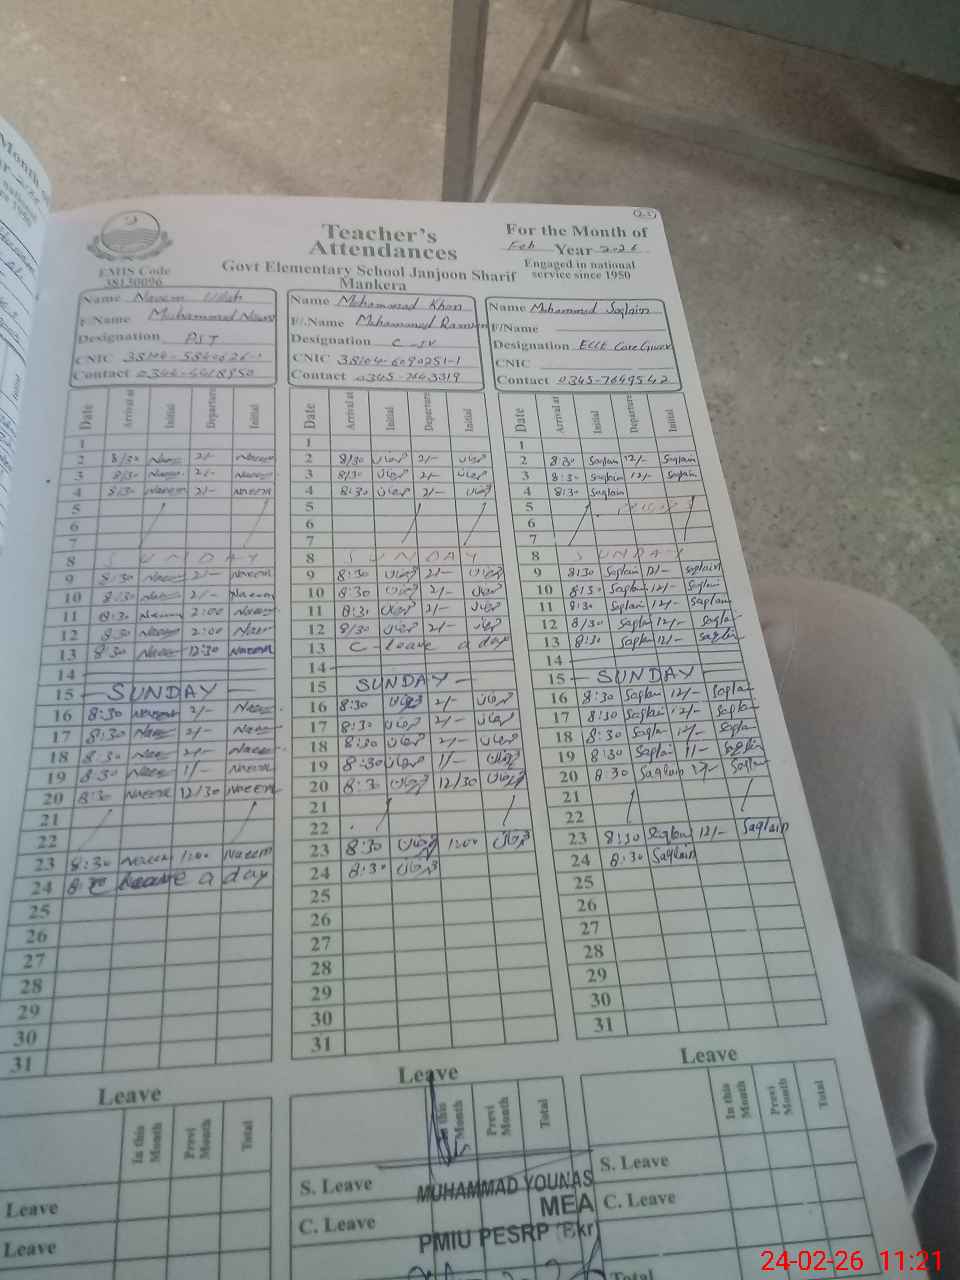 Teacher's
Attendances
For the Month of
Feb Year 2026
Engaged in national
service since 1950
EMIS Code
38130096
Govt Elementary School Janjoon Sharif
Mankera
Name Naeem Ullah
F/Name Muhammad
Designation PST
CNIC
Contact
Name Muhammad Khan
F/.Name Muhammad Ramzan
Designation C-IV
CNIC 38104-6090251-1
Contact 0345-7643319
Name Muhammad Saqlain
F/Name
Designation ECCE Care Giver
CNIC
Contact 0345-7649542
Date Arrival at Initial Departure Initial
1
2 8/30 Naeem 2/- Naeem
3 8/30 Naeem 2/- Naeem
4 8/30 Naeem 2/- Naeem
5
6
7
8 SUNDAY
9 8:30 Naeem 2/- Naeem
10 8:30 Naeem 2/- Naeem
11 8:30 Naeem 2:00 Naeem
12 8:30 Naeem 2:00 Naeem
13 8:30 Naeem 12:30 Naeem
14
15 SUNDAY
16 8:30 Naeem 2/- Naeem
17 8:30 Naeem 2/- Naeem
18 8:30 Naeem 2/- Naeem
19 8:30 Naeem 1/- Naeem
20 8:30 Naeem 12/30 Naeem
21
22
23 8:30 Naeem 1:00 Naeem
24 C Leave a day
25
26
27
28
29
30
31
Date Arrival at Initial Departure Initial
1
2 8/30 2/-
3 8/30 2/-
4 8:30 2/-
5
6
7
8 SUNDAY
9 8:30 2/-
10 8:30 2/-
11 8:30 2/-
12 8/30 2/-
13 C-leave a day
14
15 SUNDAY
16 8:30 2/-
17 8:30 2/-
18 8:30 2/-
19 8:30 1/-
20 8:30 12/30
21
22
23 8:30 1:00
24 8:30
25
26
27
28
29
30
31
Date Arrival at Initial Departure Initial
1
2 8:30 Saqlain 12/- Saqlain
3 8:30 Saqlain 12/- Saqlain
4 8:30 Saqlain
5
6
7
8 SUNDAY
9 8:30 Saqlain 12/- Saqlain
10 8:30 Saqlain 12/- Saqlain
11 8:30 Saqlain 12/- Saqlain
12 8/30 Saqlain 12/- Saqlain
13 8:30 Saqlain 12/- Saqlain
14
15 SUNDAY
16 8:30 Saqlain 12/- Saqlain
17 8:30 Saqlain 12/- Saqlain
18 8:30 Saqlain 12/- Saqlain
19 8:30 Saqlain 11/- Saqlain
20 8:30 Saqlain 12/- Saqlain
21
22
23 8:30 Saqlain 12/- Saqlain
24 8:30 Saqlain
25
26
27
28
29
30
31
Leave
In this Month Previ Month Total
Leave
Leave
Leave
In this Month Previ Month Total
S. Leave
C. Leave
MUHAMMAD YOUNAS
MEA
PMIU PESRP (Bkr)
Leave
In this Month Previ Month Total
S. Leave
C. Leave
Total
24-02-26 11:21